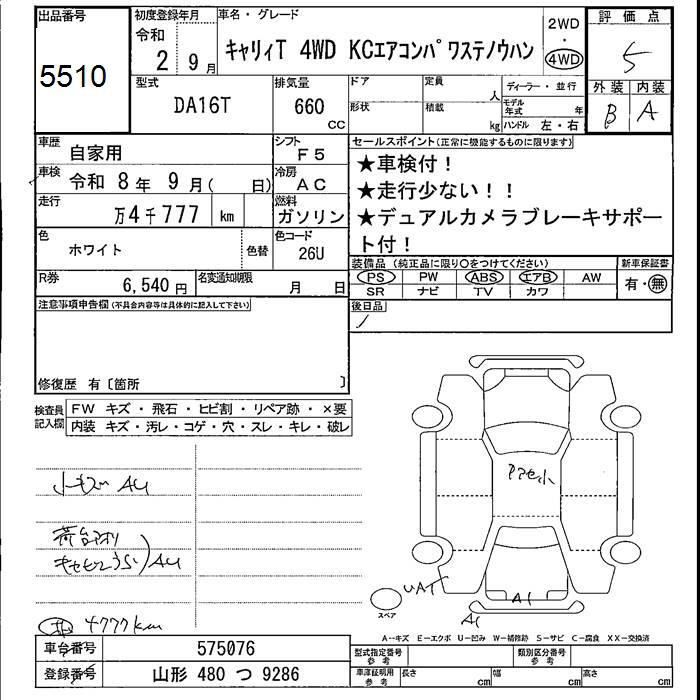 出品番号
5510
初度登録年月
令和
2 9月
車名・グレード
キャリィT 4WD KCエアコンパ ワステノウハン
2WD
・
4WD
評価点
5
外装 内装
B A
型式
DA16T
排気量
660
CC
ドア
形状
定員
人
積載
kg
ディーラー・並行
モデル年式 年
ハンドル 左・右
車歴
自家用
シフト
F5
車検
令和 8年 9月( 日)
冷房
AC
走行
万4千777 km
燃料
ガソリン
色
ホワイト
色替
色コード
26U
R券
6,540円
名変通知期限
月 日
セールスポイント(正常に機能するものに限ります)
★車検付!
★走行少ない!!
★デュアルカメラブレーキサポー
ト付!
装備品(純正品に限り〇をつけてください)
PS PW ABS エアB AW
SR ナビ TV カワ
新車保証書
有・無
後日品
注意事項申告欄(不具合内容等は具体的に記入して下さい)
修復歴 有〔箇所 〕
検査員記入欄
FW キズ・飛石・ヒビ割・リペア跡・×要
内装 キズ・汚レ・コゲ・穴・スレ・キレ・破レ
小キズ AU
AU
4777km
UAT
スペア
A1
A1
A--キズ E--エクボ U--凹み W--補修跡 S--サビ C--腐食 XX--交換済
車台番号
575076
登録番号
山形 480 つ 9286
型式指定番号
参考
類別区分番号
参考
車庫証明用
参考
長さ cm
幅 cm
高さ cm